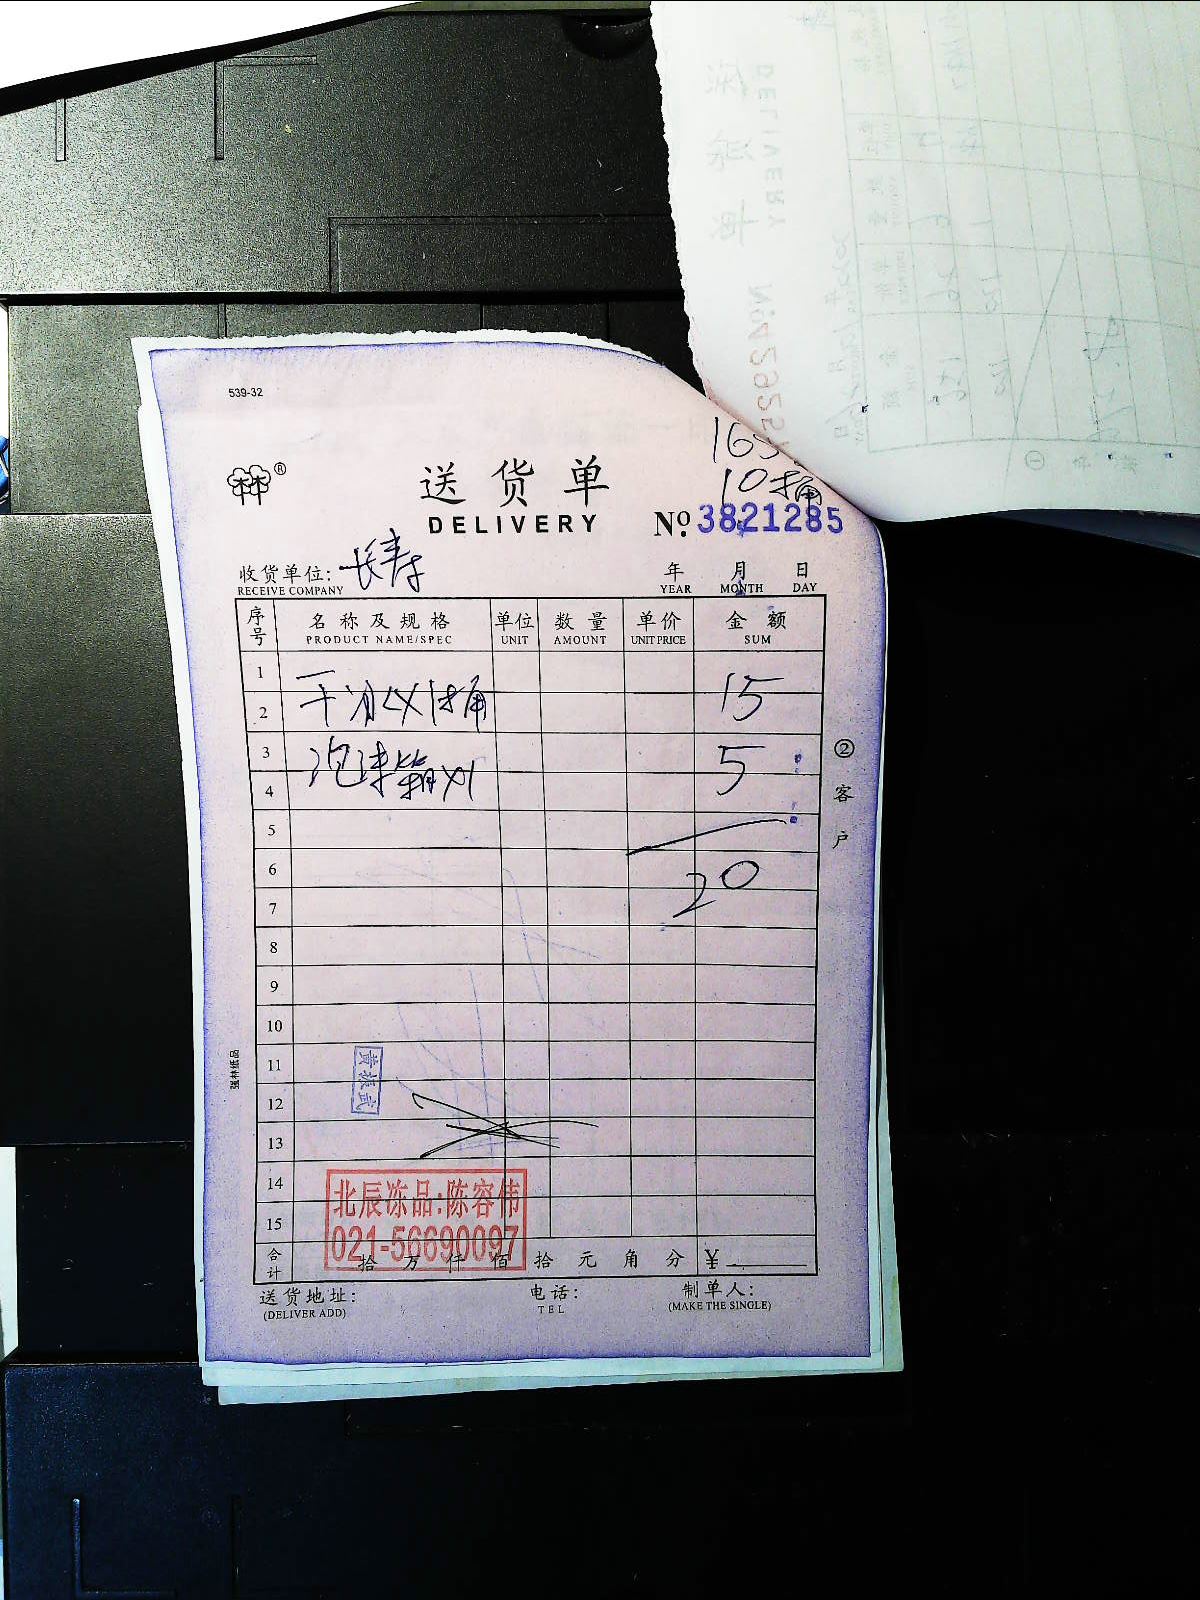 539-32
林®
送货单
165
10桶
DELIVERY
№ 3821285
收货单位: 长寿
RECEIVE COMPANY
年 月 日
YEAR MONTH DAY
序号 名称及规格 单位 数量 单价 金额
PRODUCT NAME/SPEC UNIT AMOUNT UNIT PRICE SUM
1
2 干冰 1桶 15
3 泡沫箱X1 5
4
5
6 20
7
8
9
10
11
12
13
14
15
② 客户
强林纸品
北辰冻品:陈容伟
021-56690097
合计 拾 万 仟 佰 拾 元 角 分 ¥
送货地址: 电话: 制单人:
(DELIVER ADD) TEL (MAKE THE SINGLE)